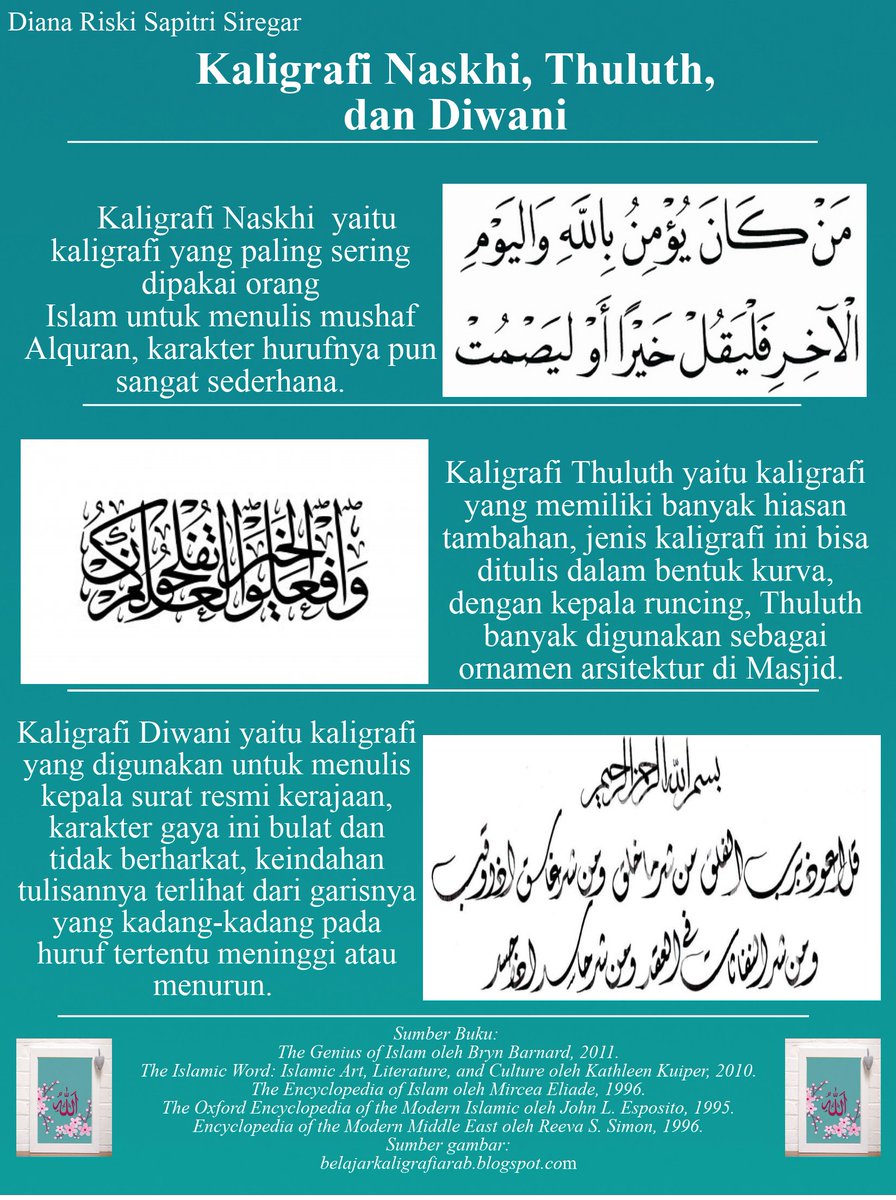 Diana Riski Sapitri Siregar
Kaligrafi Naskhi, Thuluth,
dan Diwani
Kaligrafi Naskhi yaitu
kaligrafi yang paling sering
dipakai orang
Islam untuk menulis mushaf
Alquran, karakter hurufnya pun
sangat sederhana.
مَنْ كَانَ يُؤْمِنُ بِاللَّهِ وَالْيَوْمِ
الْآخِرِ فَلْيَقُلْ خَيْرًا أَوْ لِيَصْمُتْ
وافعلوا الخير لعلكم تفلحون
Kaligrafi Thuluth yaitu kaligrafi
yang memiliki banyak hiasan
tambahan, jenis kaligrafi ini bisa
ditulis dalam bentuk kurva,
dengan kepala runcing, Thuluth
banyak digunakan sebagai
ornamen arsitektur di Masjid.
Kaligrafi Diwani yaitu kaligrafi
yang digunakan untuk menulis
kepala surat resmi kerajaan,
karakter gaya ini bulat dan
tidak berharkat, keindahan
tulisannya terlihat dari garisnya
yang kadang-kadang pada
huruf tertentu meninggi atau
menurun.
بسم الله الرحمن الرحيم
قل اعوذ برب الفلق من شر ما خلق ومن شر غاسق اذا وقب
ومن شر النفاثات في العقد ومن شر حاسد اذا حسد
Sumber Buku:
The Genius of Islam oleh Bryn Barnard, 2011.
The Islamic Word: Islamic Art, Literature, and Culture oleh Kathleen Kuiper, 2010.
The Encyclopedia of Islam oleh Mircea Eliade, 1996.
The Oxford Encyclopedia of the Modern Islamic oleh John L. Esposito, 1995.
Encyclopedia of the Modern Middle East oleh Reeva S. Simon, 1996.
Sumber gambar:
belajarkaligrafiarab.blogspot.com
الله
الله